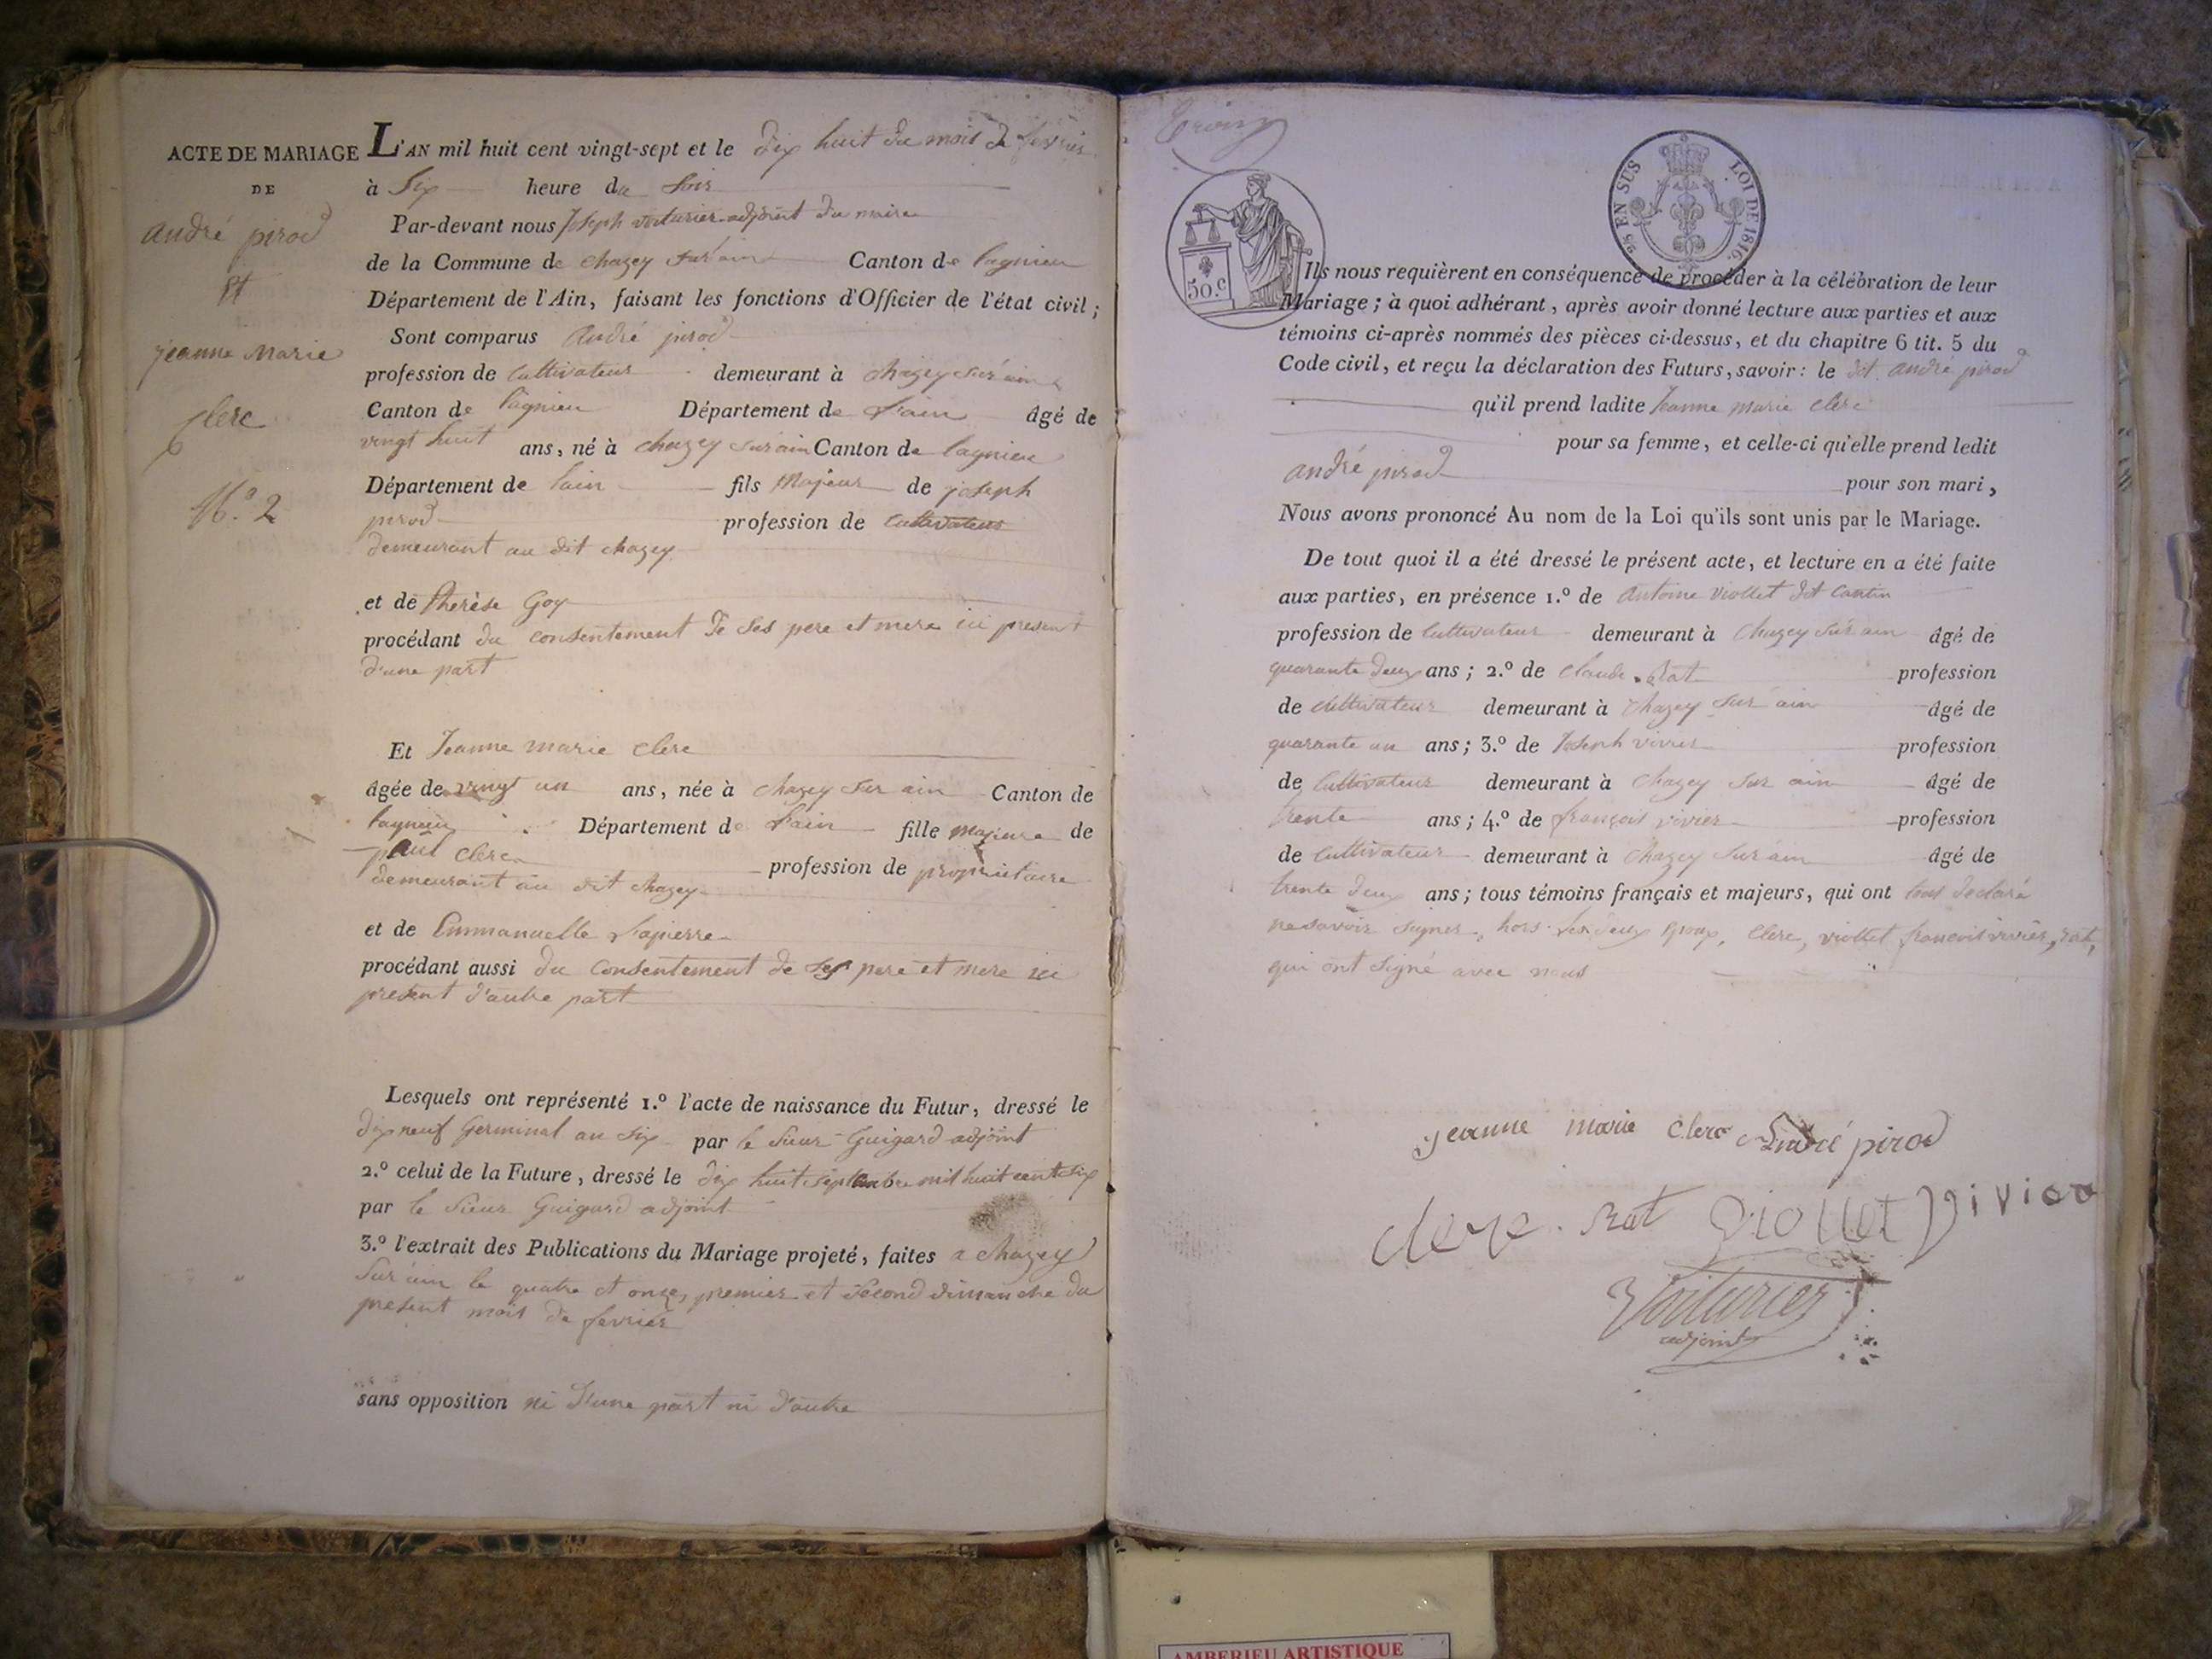 ACTE DE MARIAGE
DE
andré pirod
Et
jeanne Marie
Clerc
N.° 2
L'AN mil huit cent vingt-sept et le dix huit du mois de fevrier
à Six heure du Soir
Par-devant nous Joseph voiturier adjoint du maire
de la Commune de chazey sur ain Canton de lagnieu
Département de l'Ain, faisant les fonctions d'Officier de l'état civil ;
Sont comparus André pirod
profession de cultivateur demeurant à chazey sur ain
Canton de lagnieu Département de l'ain âgé de
vingt huit ans, né à chazey sur ain Canton de lagnieu
Département de l'ain fils Majeur de joseph
pirod profession de cultivateur
demeurant au dit chazey
et de therèse Goy
procédant du consentement de ses pere et mere ici present
d'une part
Et Jeanne marie clerc
âgée de vingt un ans, née à chazey sur ain Canton de
lagnieu Département de l'ain fille majeure de
paul clerc profession de propriétaire
demeurant au dit chazey
et de Emmanuelle Lapierre
procédant aussi du consentement de ses pere et mere ici
present d'autre part
Lesquels ont représenté 1.° l'acte de naissance du Futur, dressé le
dix neuf Germinal an six par le sieur Guigard adjoint
2.° celui de la Future, dressé le dix huit septembre mil huit cent six
par le sieur Guigard adjoint
3.° l'extrait des Publications du Mariage projeté, faites a chazey
sur ain le quatre et onze, premier et second dimanche du
present mois de fevrier
sans opposition ni d'une part ni d'autre
50.c
25 EN SUS LOI DE 1816.
Ils nous requièrent en conséquence de procéder à la célébration de leur
Mariage ; à quoi adhérant, après avoir donné lecture aux parties et aux
témoins ci-après nommés des pièces ci-dessus, et du chapitre 6 tit. 5 du
Code civil, et reçu la déclaration des Futurs, savoir : le dit andré pirod
qu'il prend ladite Jeanne marie clerc
pour sa femme, et celle-ci qu'elle prend ledit
andré pirod pour son mari,
Nous avons prononcé Au nom de la Loi qu'ils sont unis par le Mariage.
De tout quoi il a été dressé le présent acte, et lecture en a été faite
aux parties, en présence 1.° de Antoine viollet dit cantin
profession de cultivateur demeurant à Chazey sur ain âgé de
quarante deux ans ; 2.° de Claude Rat profession
de cultivateur demeurant à chazey sur ain âgé de
quarante un ans ; 3.° de Joseph vivier profession
de cultivateur demeurant à chazey sur ain âgé de
trente ans ; 4.° de françois vivier profession
de cultivateur demeurant à chazey sur ain âgé de
trente deux ans ; tous témoins français et majeurs, qui ont tous declaré
ne savoir signer, hors les deux epoux, Clerc, viollet françois vivier, rat,
qui ont signé avec nous
jeanne marie clerc André pirod
clerc . Rat viollet vivier
Voiturier
adjoint
AMBERIEU ARTISTIQUE